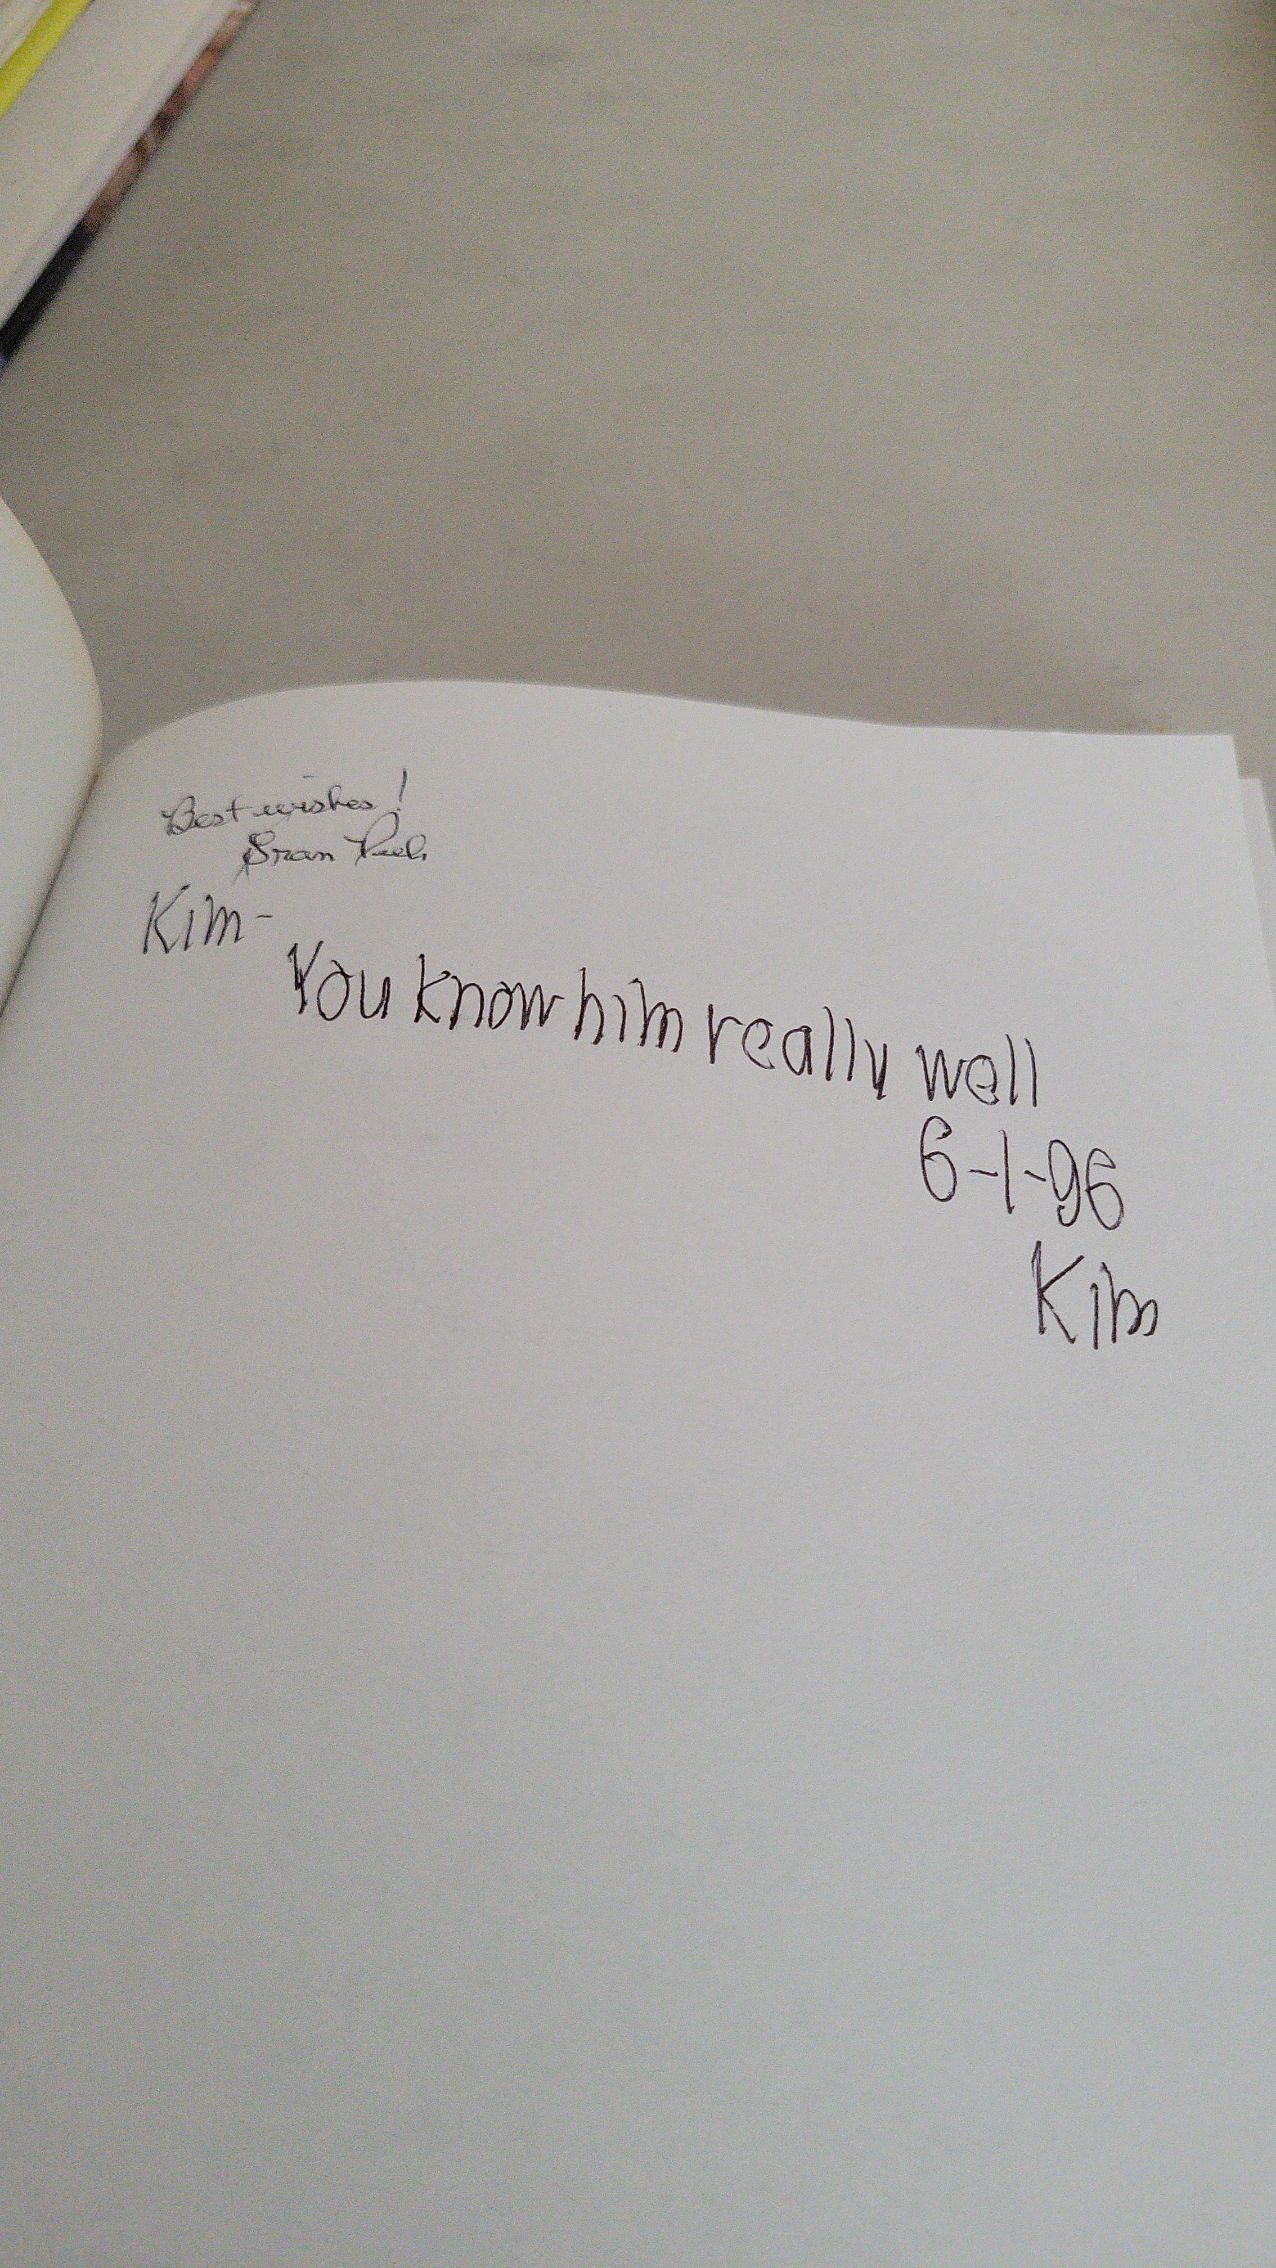 Best wishes!
Kim-
You know him really well
6-1-96
Kim